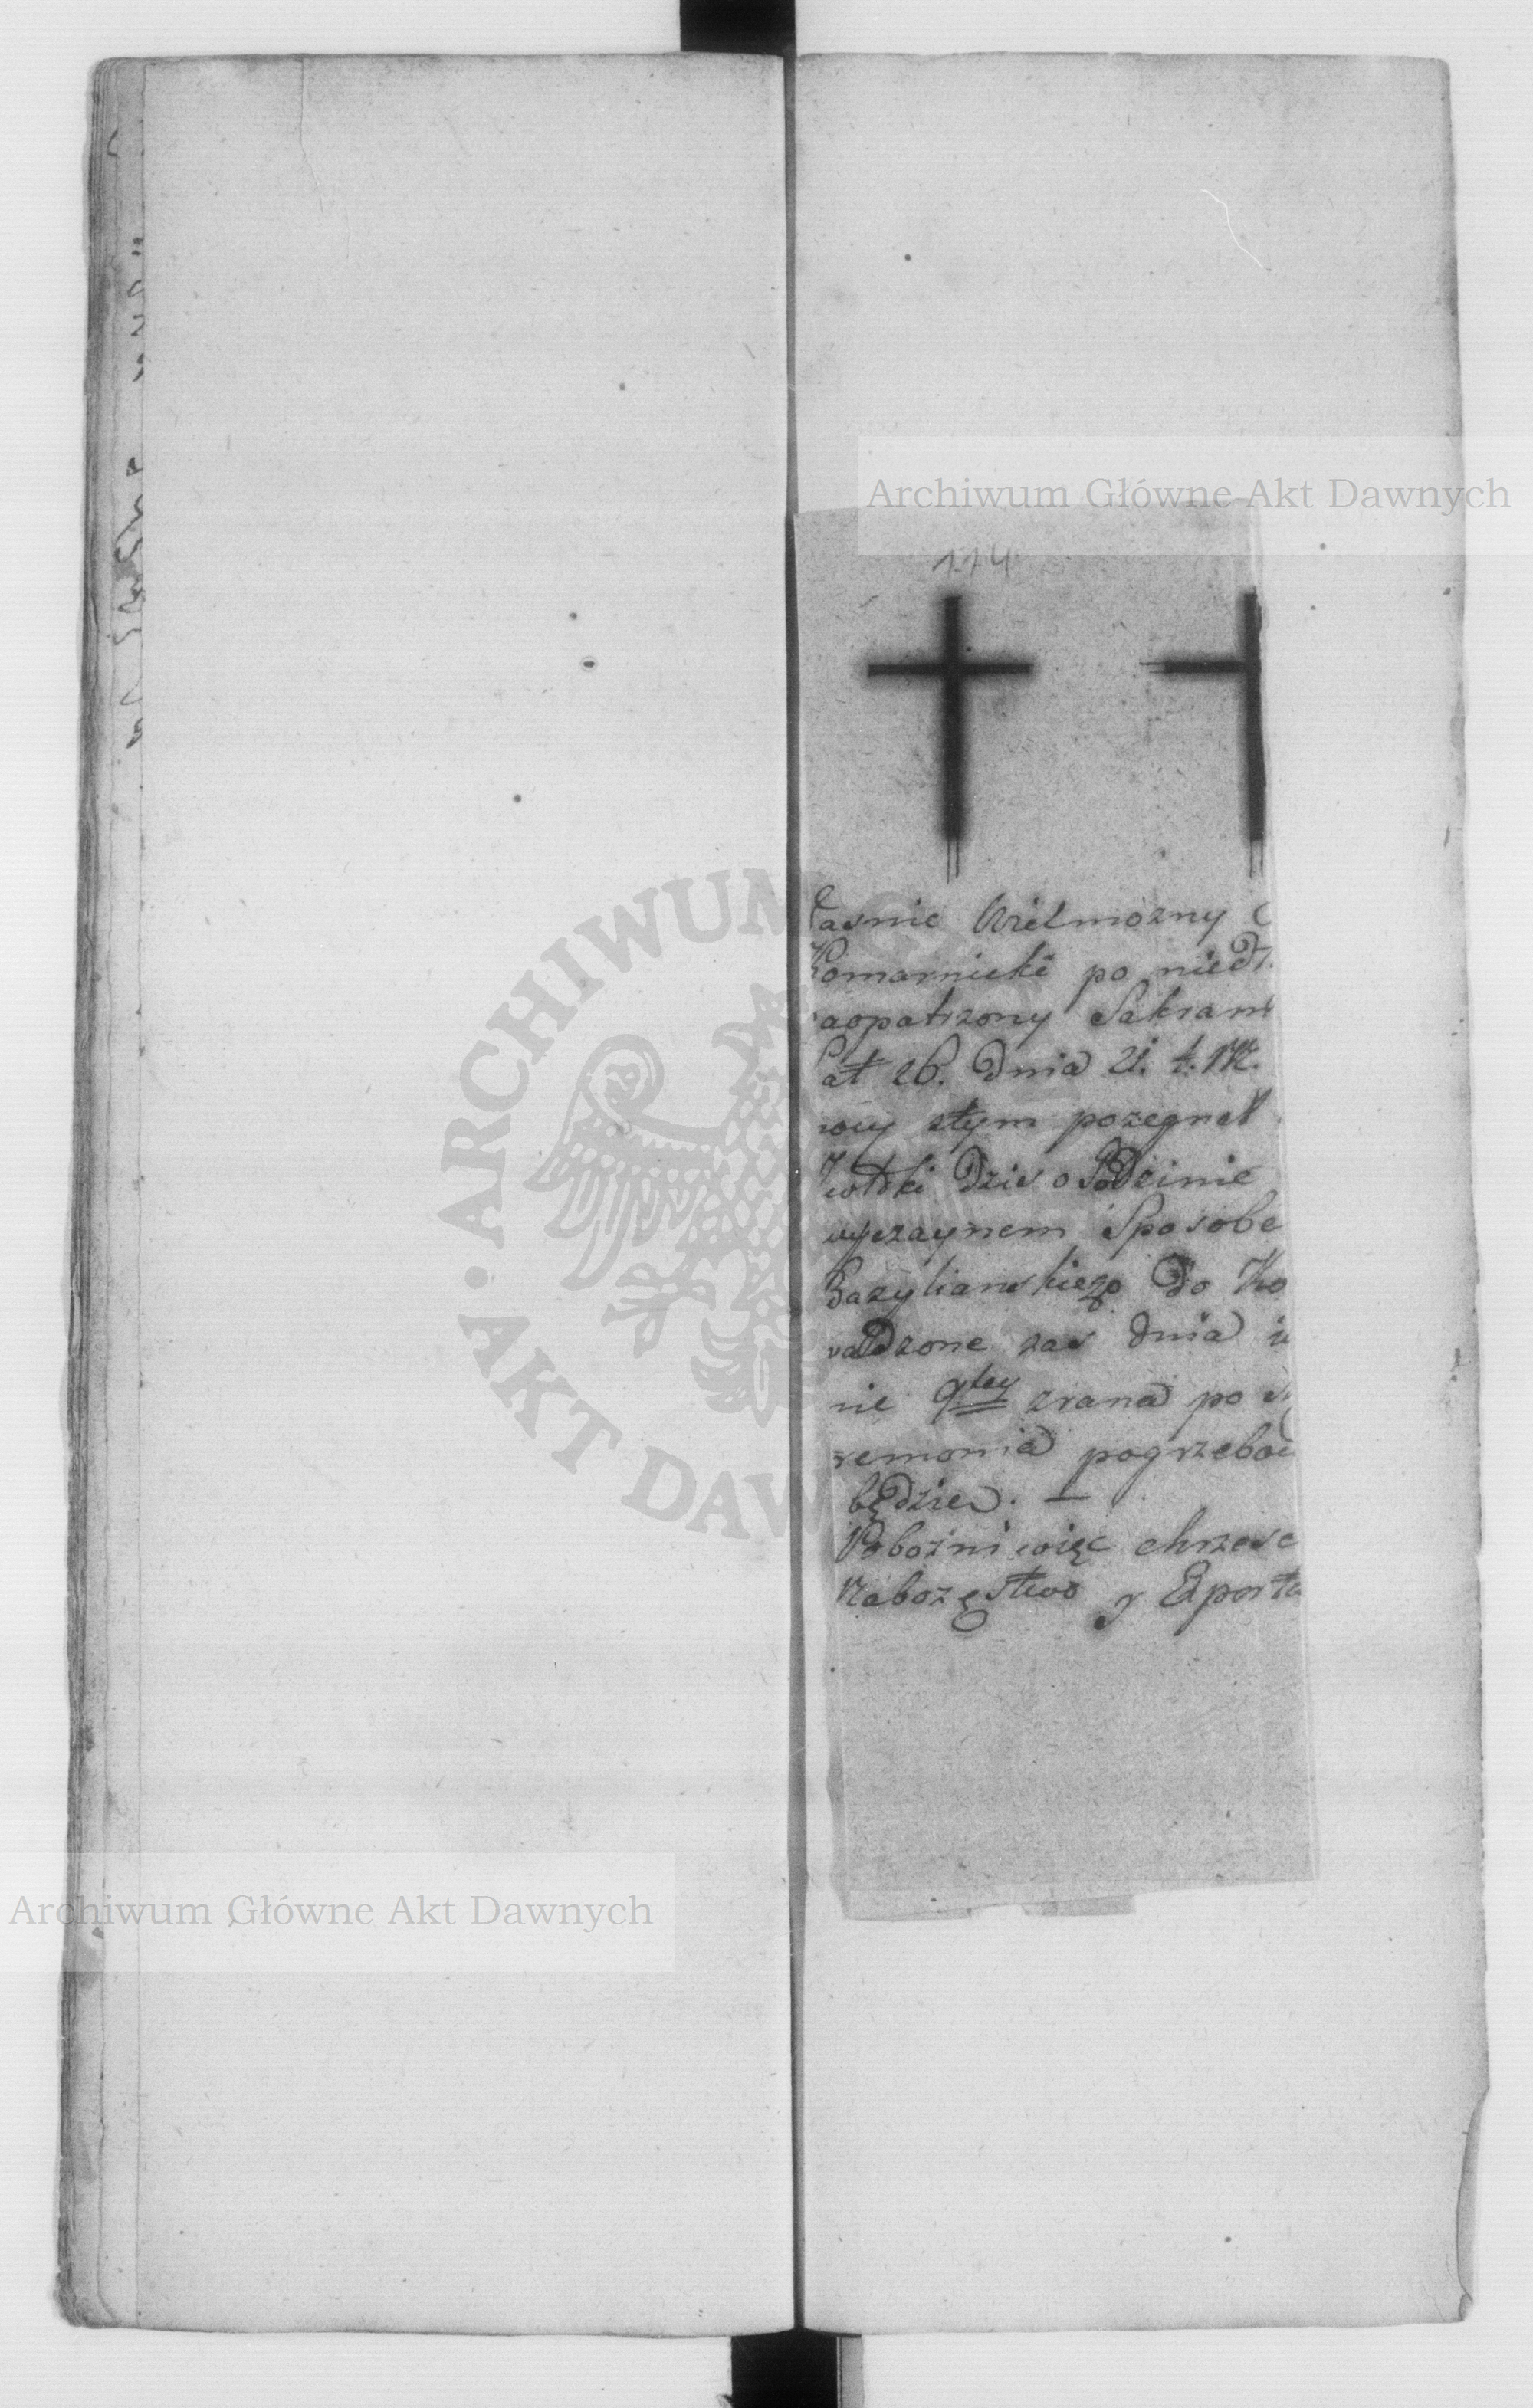 Archiwum Główne Akt Dawnych
114
Jasnie Wielmozny
Komarnicki po niedł
aopatrzony Sakram
at 26. dnia 21. t. M.
rowy stym pozegnał
Zwłoki dzis o Godzinie
wyczaynem Sposobe
Bazylianskiego do Ko
wadzone zas dnia iu
nie 9tey zrana po s
remonia pogrzebow
będzie. —
Pobozni więc chrzesc
Nabozęstwo y Exporta
ARCHIWUM GŁÓWNE AKT DAWNYCH
Archiwum Główne Akt Dawnych